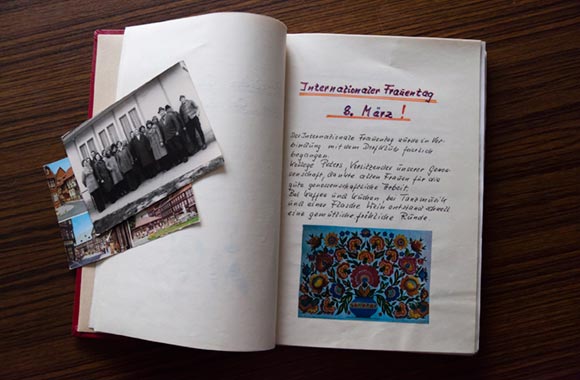 Internationaler Frauentag
8. März !
Der Internationale Frauentag würde in Ver-
bindung mit dem Dorfklub feierlich
begangen.
Kollege Peters, Vorsitzender unserer Genos-
senschaft, dankte allen Frauen für die
gute genossenschaftliche Arbeit.
Bei Kaffee und Kuchen bei Tanzmusik
und einer Flasche Wein entstand schnell
eine gemütliche fröhliche Runde.